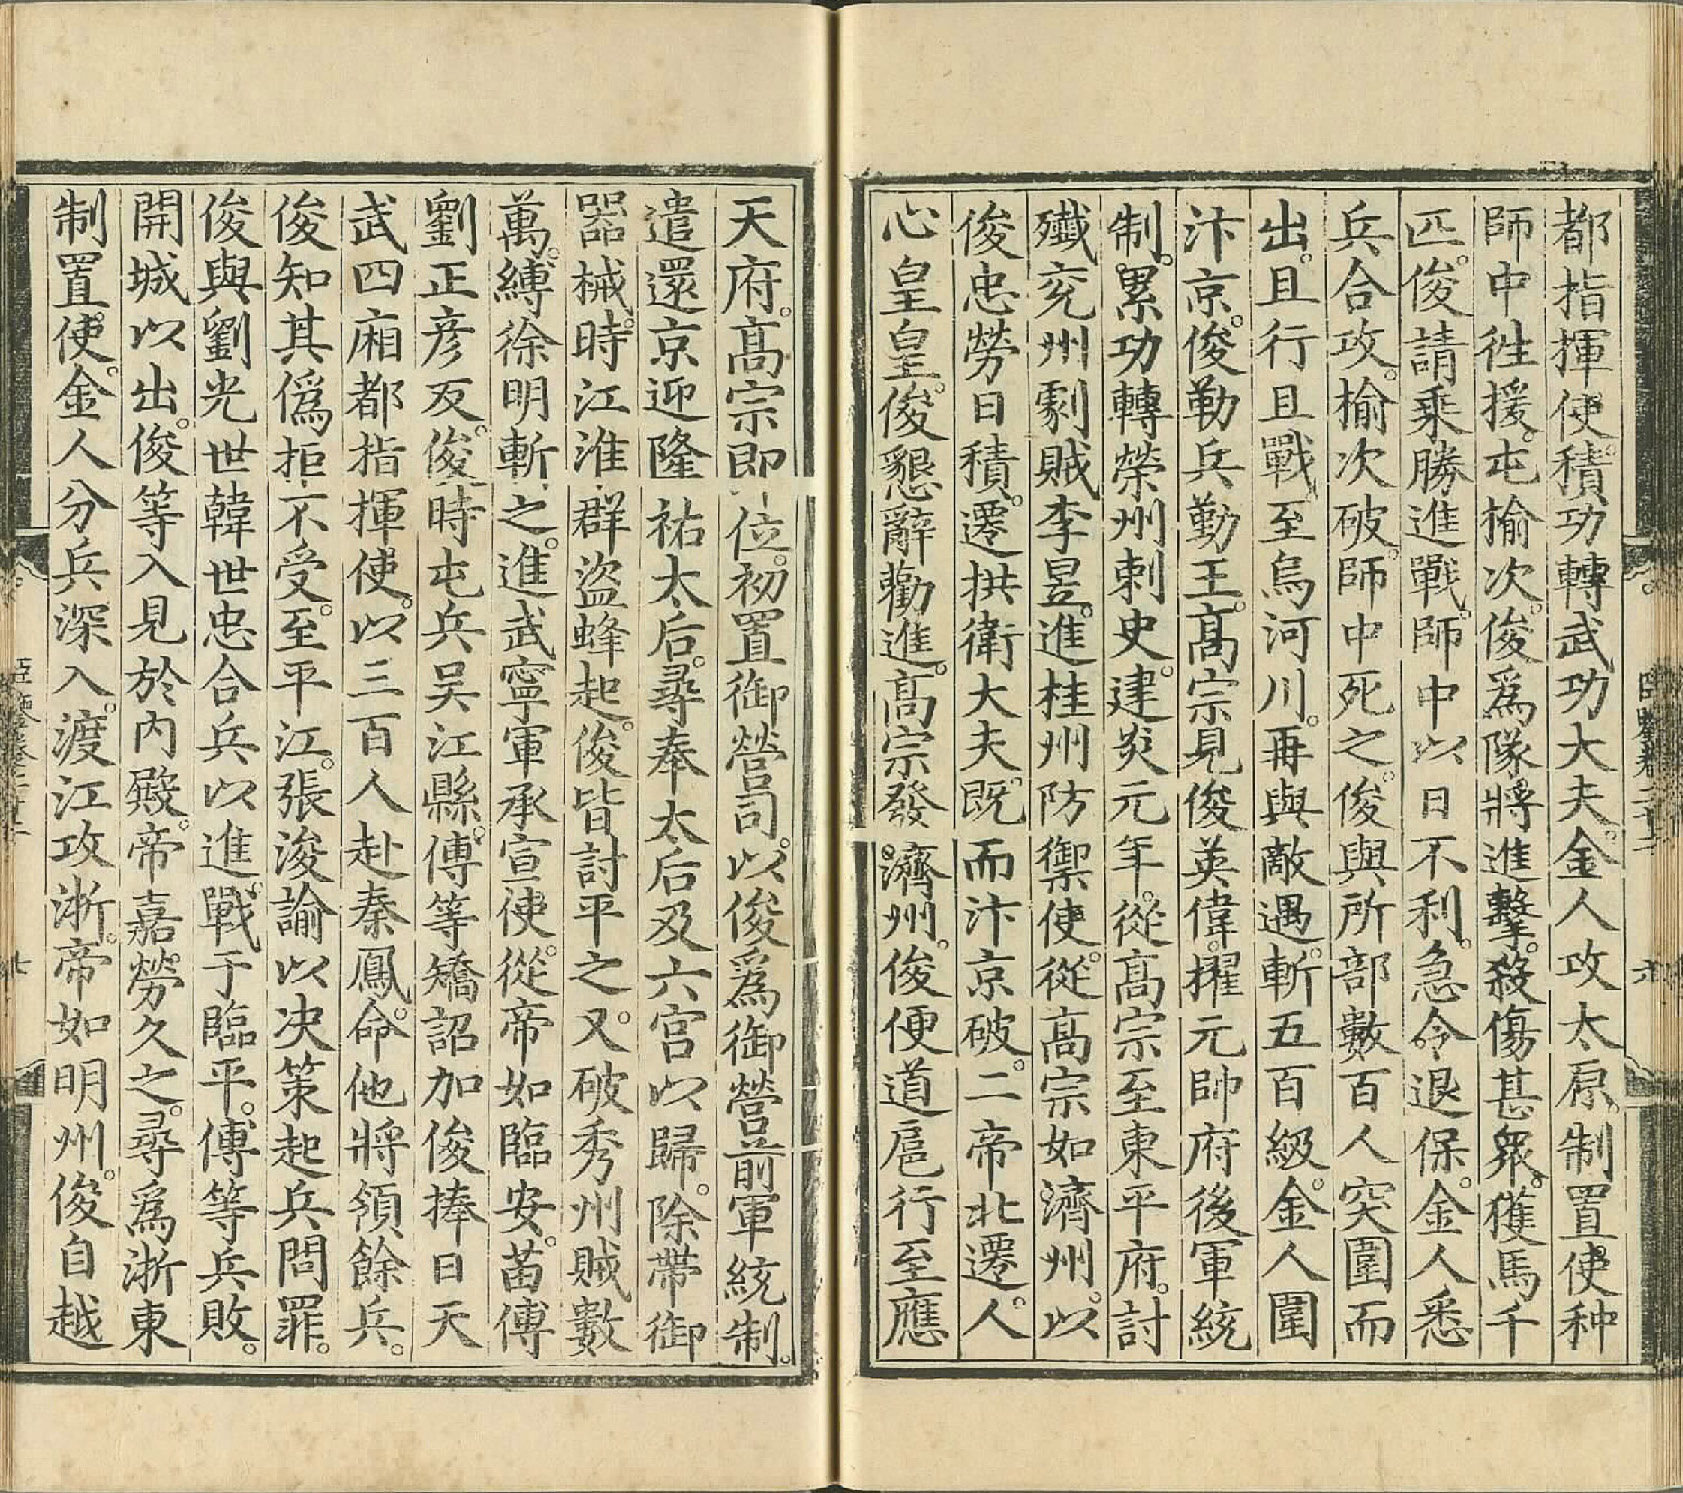 都指揮使。積功轉武功大夫。金人攻太原。制置使种
師中徃援。屯榆次。俊爲隊將進擊。殺傷甚衆。獲馬千
匹。俊請乘勝進戰。師中以日不利。急令退保。金人悉
兵合攻。榆次破。師中死之。俊與所部數百人突圍而
出。且行且戰。至烏河川。再與敵遇。斬五百級。金人圍
汴京。俊勒兵勤王。髙宗見俊英偉。擢元帥府後軍統
制。累功轉榮州刺史。建炎元年。從髙宗至東平府。討
殲兖州劇賊李昱。進桂州防禦使。從髙宗如濟州。以
俊忠勞日積。遷拱衛大夫。既而汴京破。二帝北遷。人
心皇皇。俊懇辭勸進。髙宗發濟州。俊便道扈行至應
天府。髙宗即位。初置御營司。以俊爲御營前軍統制。
遣還京迎隆祐太后。尋奉太后及六宮以歸。除帶御
噐械。時江淮群盜蜂起。俊皆討平之。又破秀州賊數
萬。縛徐明斬之。進武寧軍承宣使。從帝如臨安。苗傅
劉正彦反。俊時屯兵吴江縣。傅等矯詔加俊捧日天
武四廂都指揮使。以三百人赴秦鳳。命他將領餘兵。
俊知其僞。拒不受。至平江。張浚諭以决策起兵問罪。
俊與劉光世韓世忠合兵以進。戰于臨平。傅等兵敗。
開城以出。俊等入見於内殿。帝嘉勞久之。尋爲浙東
制置使。金人分兵深入。渡江攻浙。帝如明州。俊自越
七